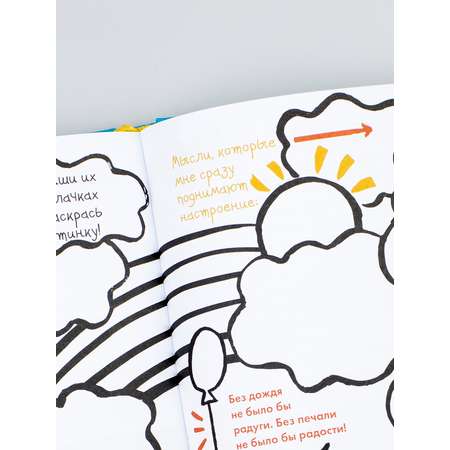 ши их
лачках
скрась
тинку!
Мысли, которые
мне сразу
поднимают
настроение:
Без дождя
не было бы
радуги. Без печали
не было бы радости!